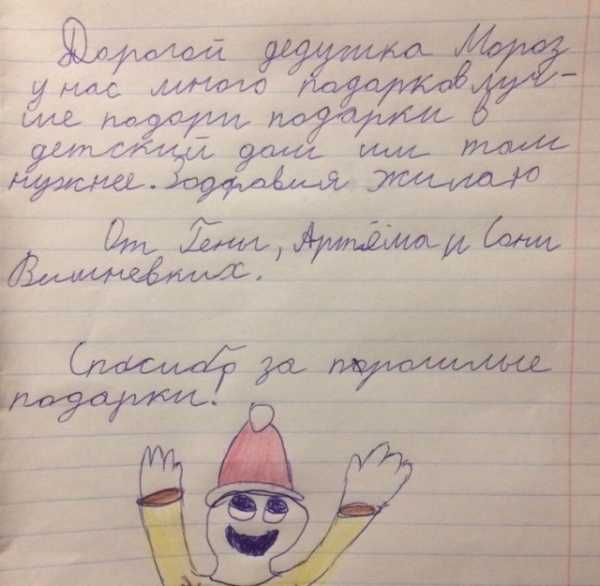 Дорогой дедушка Мороз
у нас много подарков луч-
ше подари подарки в
детский дом им там
нужнее. Здаровия жилаю
От Гены, Артёма и Сони
Вишневких.
Спасибо за прошлые
подарки!